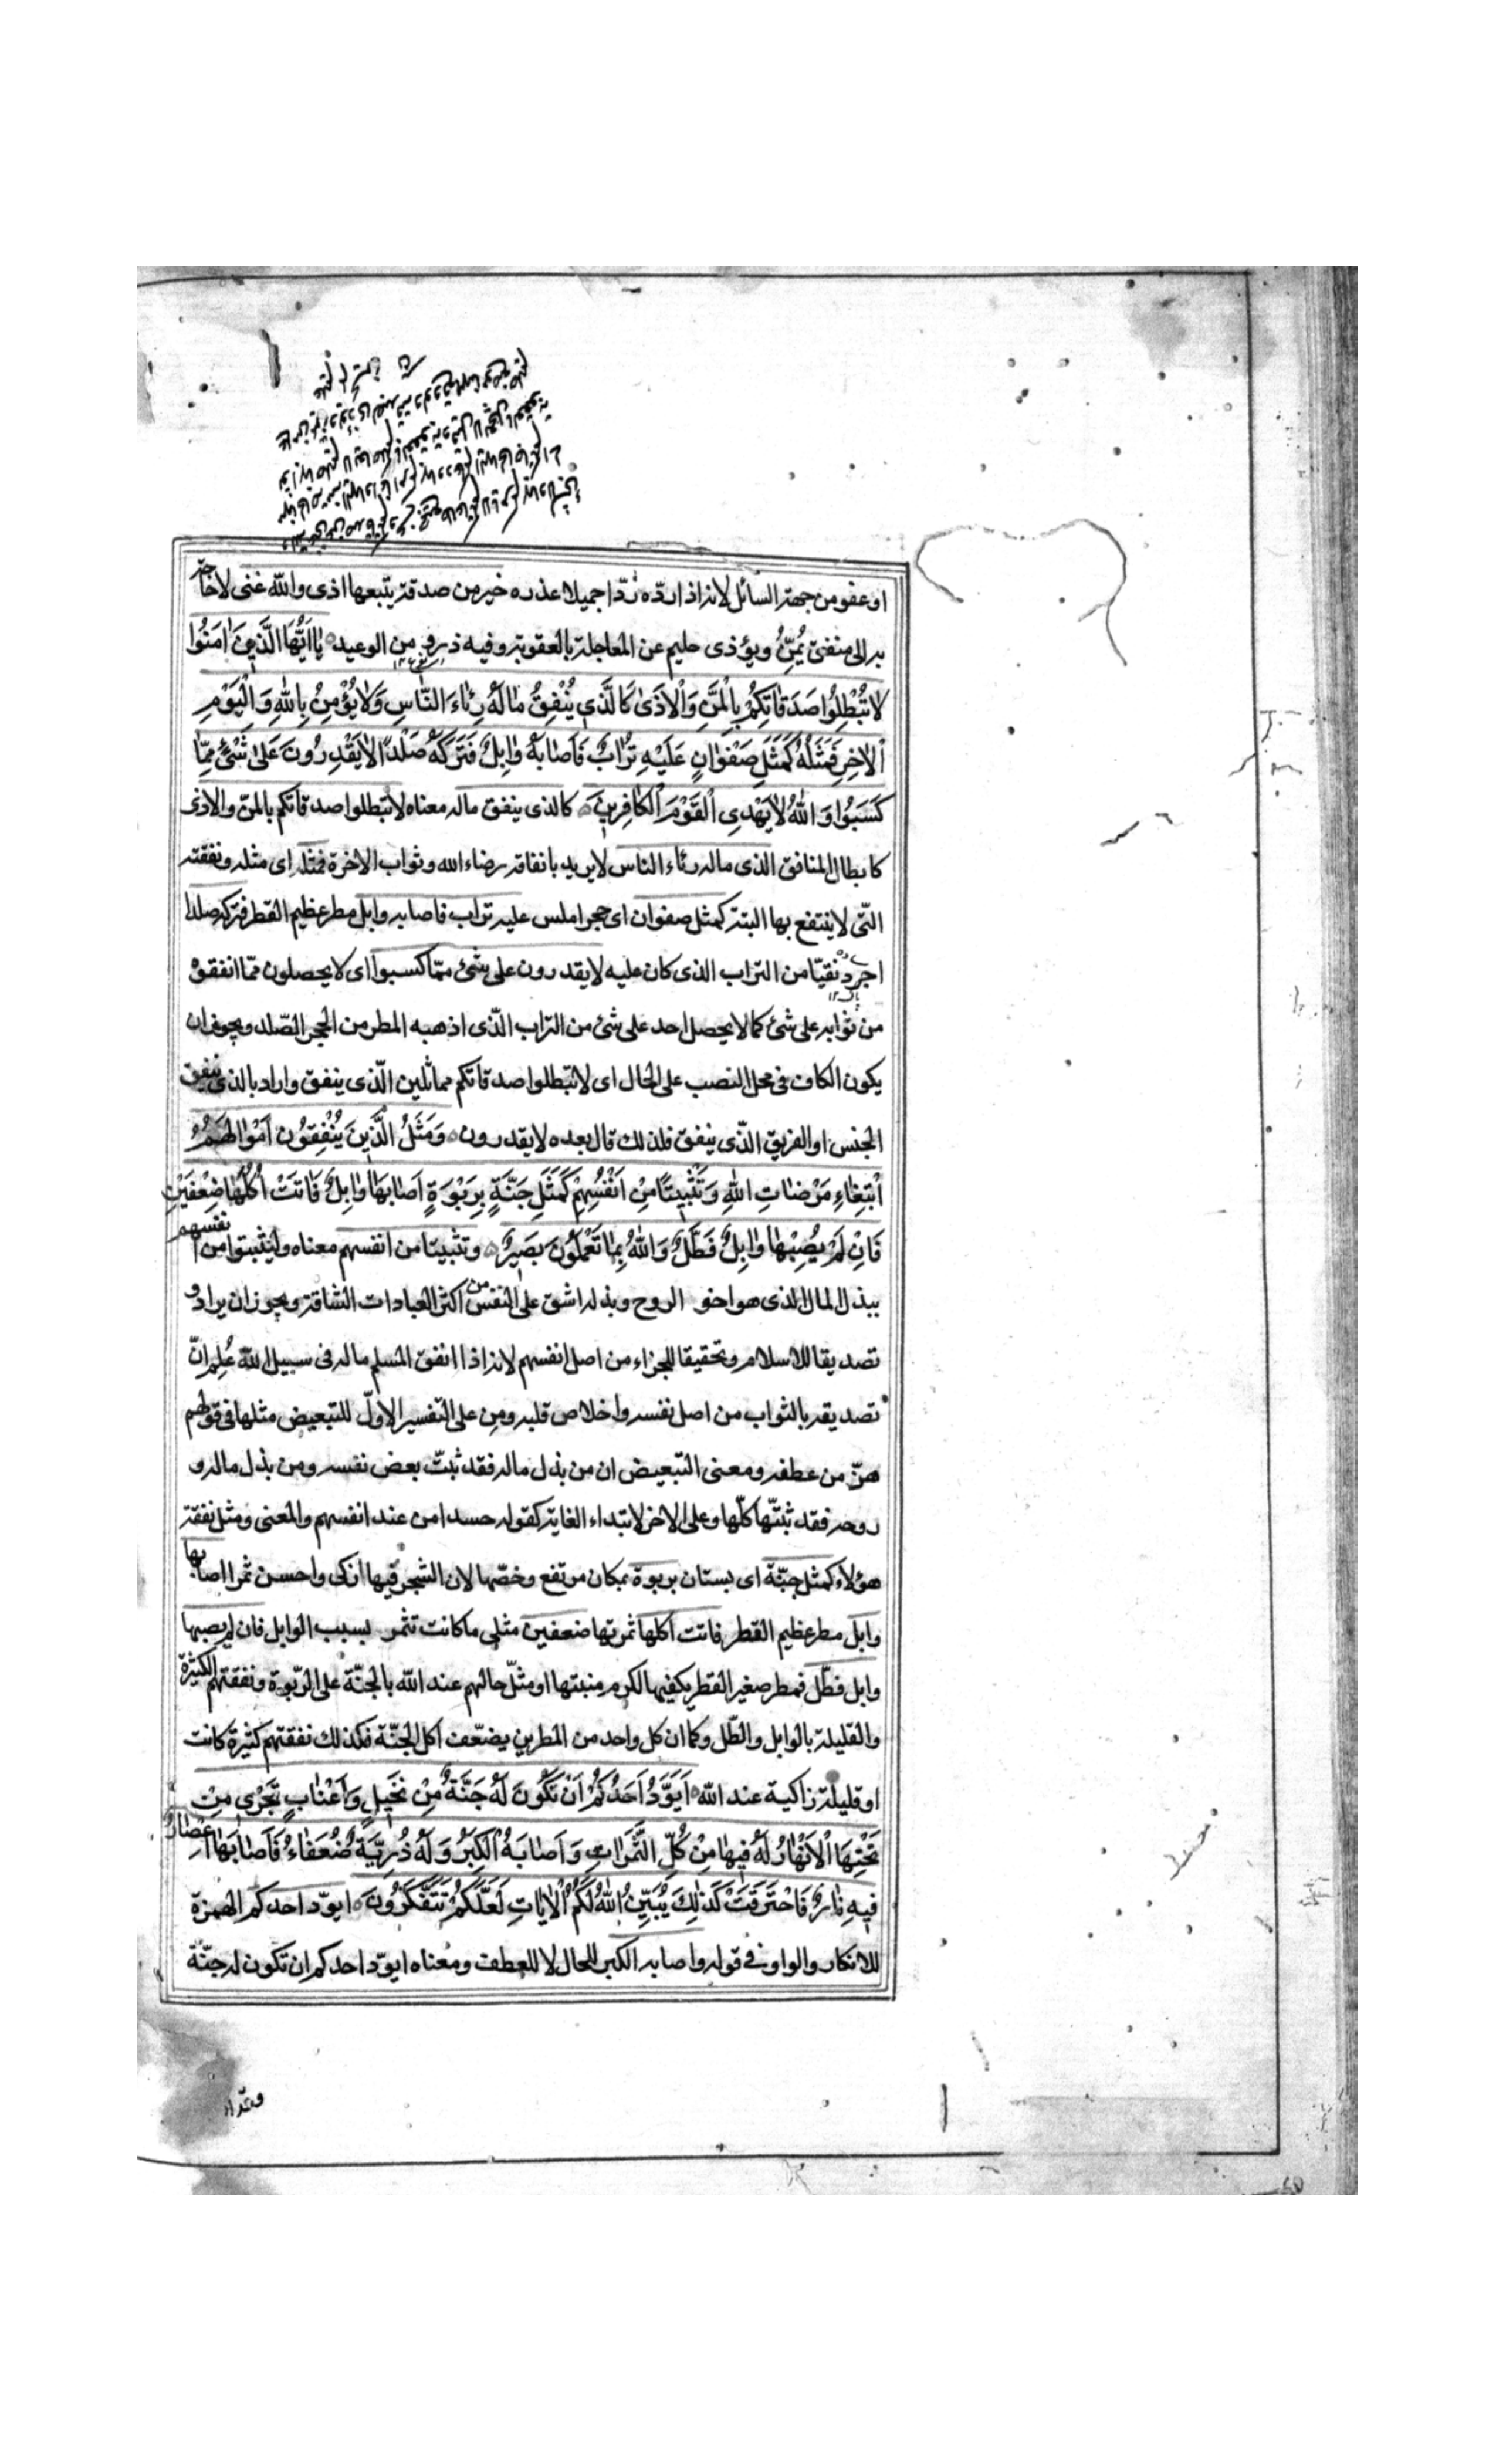 او عفو من جهة السائل لانه اذا ردّه ردّا جميلا عذره خير من صدقة يتبعها اذى والله غنى لاحاجة
به الى منفق يُمنّ ويؤذى حليم عن المعاجلة بالعقوبة وفيه ذرو من الوعيد يٰا اَيُّهَا الَّذِينَ اٰمَنُوا
لاٰ تُبْطِلُوا صَدَقٰاتِكُمْ بِالْمَنِّ وَاْلاَذىٰ كَالَّذِي يُنْفِقُ مٰالَهُ رِئٰاءَ النّٰاسِ وَلاٰ يُؤْمِنُ بِاللهِ وَالْيَوْمِ
اْلاٰخِرِ فَمَثَلُهُ كَمَثَلِ صَفْوٰانٍ عَلَيْهِ تُرٰابٌ فَاَصٰابَهُ وٰابِلٌ فَتَرَكَهُ صَلْداً لاٰ يَقْدِرُونَ عَلىٰ شَئْءٍ مِمّٰا
كَسَبُوا وَاللهُ لاٰ يَهْدِى الْقَوْمَ الْكٰافِرِينَ كالذى ينفق ماله معناه لا تبطلوا صدقاتكم بالمنّ والاذى
كابطال المنافق الذى ماله رئاء الناس لايريد بانفاقه رضاء الله وثواب الاخرة فمثله اى مثله ونفقته
التّى لا ينتفع بها البتة كمثل صفوان اى حجر املس عليه تراب فاصابه وابل مطر عظيم القطر فتركه صلدا
اجرد نقيّا من التراب الذى كان عليه لا يقدرون على شئ ممّا كسبوا اى لا يحصلون ممّا انفقوْ
من ثوابه على شئ كما لا يحصل احد على شئ من التراب الّذى اذهبه المطر من الحجر الصّلد ويجوز ان
يكون الكاف فى محل النصب على الحال اى لا تبطلوا صدقاتكم مماثلين الّذى ينفق واراد بالذى ينفق
الجنس او الفريق الّذى ينفق فلذلك قال بعده لا يقدرون وَمَثَلُ الَّذِينَ يُنْفِقُونَ اَمْوٰالَهُمُ
ابْتِغٰاءِ مَرْضٰاتِ اللهِ وَتَثْبِيتًا مِنْ اَنْفُسِهِمْ كَمَثَلِ جَنَّةٍ بِرَبْوَةٍ اَصٰابَهٰا وٰابِلٌ فَاٰتَتْ اُكُلَهٰا ضِعْفَيْنِ
فَاِنْ لَمْ يُصِبْهٰا وٰابِلٌ فَطَلٌّ وَاللهُ بِمٰا تَعْمَلُونَ بَصِيرٌ وتثبيتا من انفسهم معناه وليثبتوا من انفسهم
ببذل المال الذى هو اخو الروح وبذله اشق على النفس من اكثر العبادات الشاقة ويجوز ان يراد و
تصديقا للاسلام وتحقيقا للجزاء من اصل انفسهم لانه اذا انفق المسلم ماله فى سبيل الله عُلِم انّ
تصديقه بالثواب من اصل نفسه واخلاص قلبه ومِن على التفسير الاوّل للتبعيض مثلها فى قولهم
هزّ من عطفه ومعنى التبعيض ان من بذل ماله فقد ثبّت بعض نفسه ومن بذل ماله و
روحه فقد ثبّتها كلّها وعلى الاخر لابتداء الغاية كقوله حسدا من عند انفسهم والمعنى ومثل نفقة
هؤلاء كمثل جنّة اى بستان بربوة بمكان مرتفع وخصّها لان الشجر فيها ازكى واحسن ثمرا اصابها
وابل مطر عظيم القطر فاتت اكلها ثمرتها ضعفين مثلى ماكانت تثمر بسبب الوابل فان لم يصبها
وابل فطلّ فمطر صغير القطر يكفيها لكرم منبتها او مثّل حالهم عند الله بالجنّة على الرّبوة ونفقتهم الكثيرة
والقليلة بالوابل والطّل وكما ان كل واحد من المطرين يضعّف اكل الجنّة فكذلك نفقتهم كثيرة كانت
او قليلة زاكية عند الله اَيَوَدُّ اَحَدُكُمْ اَنْ تَكُونَ لَهُ جَنَّةٌ مِنْ نَخِيلٍ وَاَعْنٰابٍ تَجْرِي مِنْ
تَحْتِهَا اْلاَنْهٰارُ لَهُ فِيهٰا مِنْ كُلِّ الثَّمَرٰاتِ وَاَصٰابَهُ الْكِبَرُ وَلَهُ ذُرِّيَّةٌ ضُعَفٰاءُ فَاَصٰابَهٰا اِعْصٰارٌ
فِيهِ نٰارٌ فَاحْتَرَقَتْ كَذٰلِكَ يُبَيِّنُ اللهُ لَكُمُ اْلاٰيٰاتِ لَعَلَّكُمْ تَتَفَكَّرُونَ ايودّ احدكم الهمزة
للانكار والواو فى قوله واصابه الكبر للحال لا للعطف ومعناه ايودّ احدكم ان تكون له جنّة